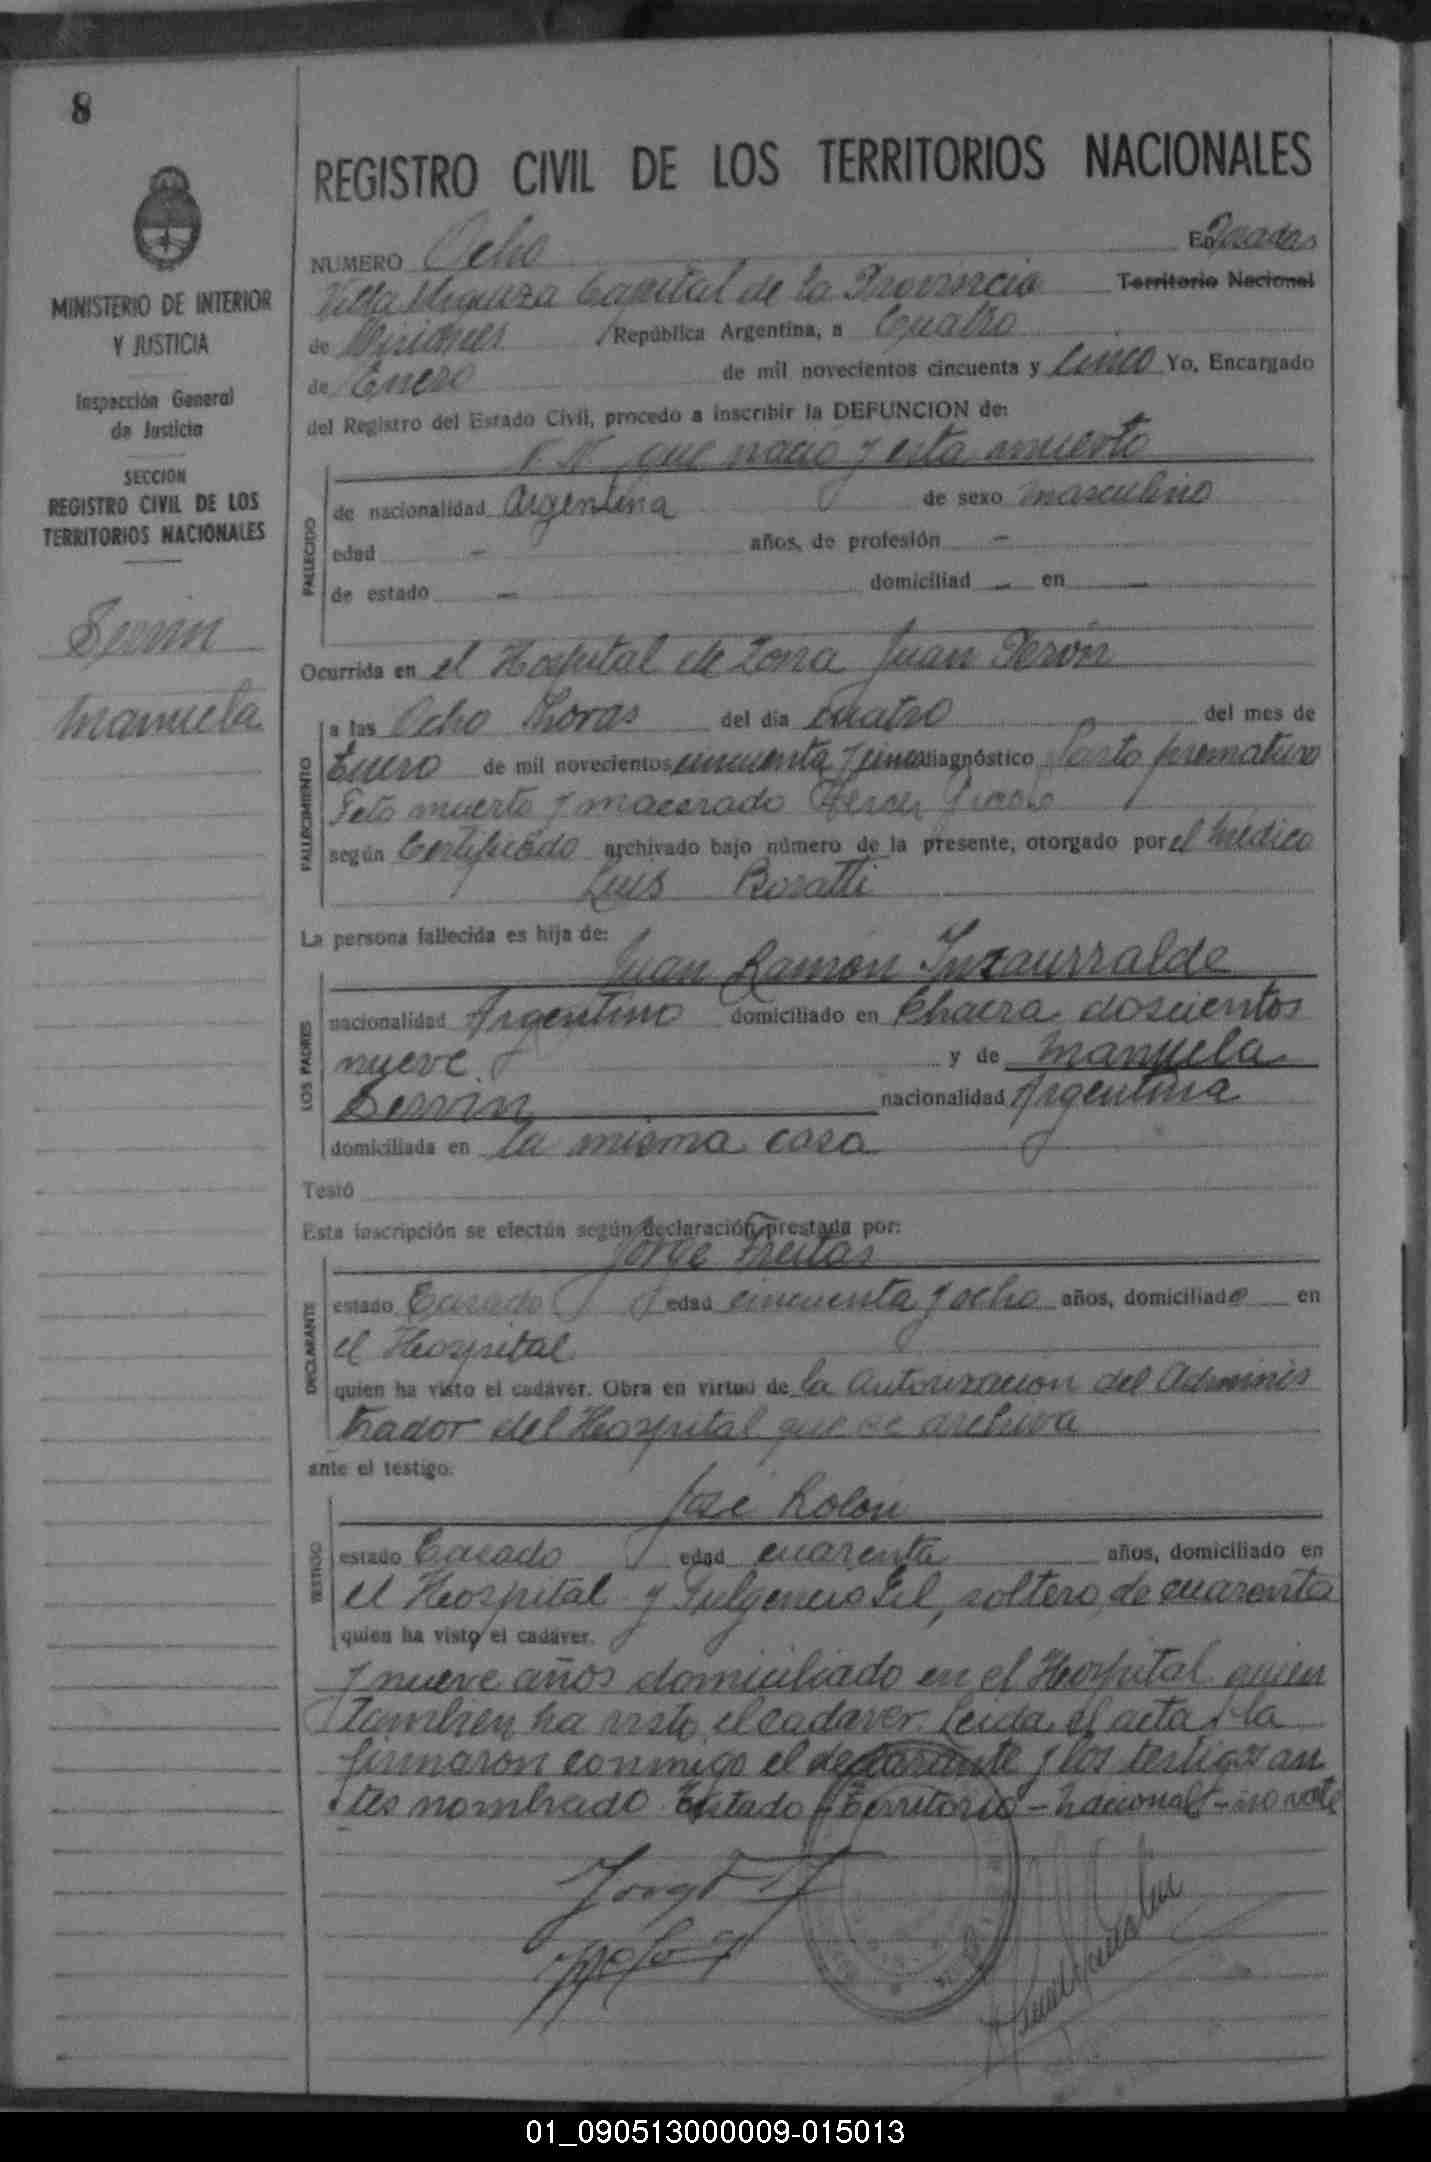 8
REGISTRO CIVIL DE LOS TERRITORIOS NACIONALES
MINISTERIO DE INTERIOR
Y JUSTICIA
Inspección General
de Justicia
SECCION
REGISTRO CIVIL DE LOS
TERRITORIOS NACIONALES
Servin
Manuela
NUMERO Ocho En Posadas
Villa Capital de la Provincia Territorio Nacional
de Misiones República Argentina, a Cuatro
de Enero de mil novecientos cincuenta y Cinco Yo, Encargado
del Registro del Estado Civil, procedo a inscribir la DEFUNCION de:
N.N. que nacio y esta muerto
FALLECIDO
de nacionalidad Argentina de sexo masculino
edad - años, de profesión -
de estado - domiciliad - en -
Ocurrida en el Hospital de Zona Juan Perón
FALLECIMIENTO
a las Ocho horas del día cuatro del mes de
Enero de mil novecientos cincuenta y cinco diagnóstico Parto prematuro
Feto muerto y macerado
según Certificado archivado bajo número de la presente, otorgado por el médico
Luis Boratti
La persona fallecida es hija de:
LOS PADRES
Juan Ramón Inzaurralde
nacionalidad Argentino domiciliado en Chacra doscientos
nueve y de Manuela
Servin nacionalidad Argentina
domiciliada en la misma casa
Testó
Esta inscripción se efectúa según declaración prestada por:
DECLARANTE
Jorge Freitas
estado Casado edad cincuenta y ocho años, domiciliado en
el Hospital
quien ha visto el cadáver. Obra en virtud de la autorizacion del Adminis
trador del Hospital que se archiva
ante el testigo:
TESTIGO
José Rolon
estado Casado edad cuarenta años, domiciliado en
el Hospital y Fulgencio Gil, soltero, de cuarenta
quien ha visto el cadáver.
y nueve años domiciliado en el Hospital quien
tambien ha visto el cadaver. Leida el acta la
firmaron conmigo el declarante y los testigos an
tes nombrado Testado - Territorio - Nacional - no vale
01_090513000009-015013